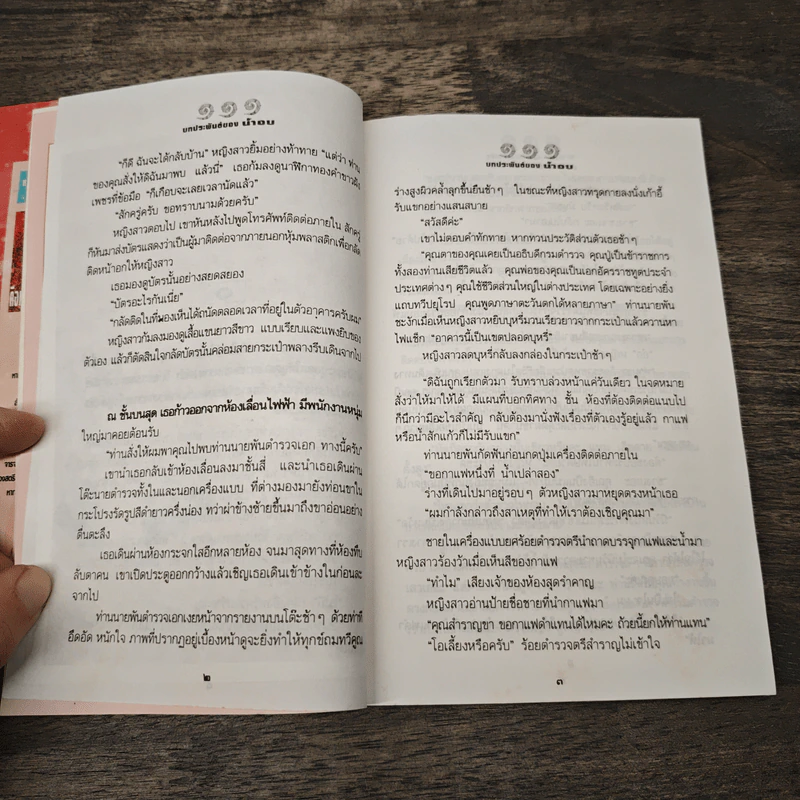 ๑๑๑
บทประพันธ์ของ น้ำอบ
“ก็ดี ฉันจะได้กลับบ้าน” หญิงสาวยิ้มอย่างท้าทาย “แต่ว่า ท่าน
ของคุณสั่งให้ดิฉันมาพบ แล้วนี่” เธอก้มลงดูนาฬิกาทองคำขาวฝัง
เพชรที่ข้อมือ “ก็เกือบจะเลยเวลานัดแล้ว”
“สักครู่ครับ ขอทราบนามด้วยครับ”
หญิงสาวตอบไป เขาหันหลังไปพูดโทรศัพท์ติดต่อภายใน สักครู่
ก็หันมาส่งบัตรแสดงว่าเป็นผู้มาติดต่อจากภายนอกหุ้มพลาสติกเพื่อกลัด
ติดหน้าอกให้หญิงสาว
เธอมองดูบัตรนั้นอย่างสยดสยอง
“บัตรอะไรกันเนี่ย”
“กลัดติดในที่มองเห็นได้ถนัดตลอดเวลาที่อยู่ในตัวอาคารครับผม”
หญิงสาวก้มลงมองดูเสื้อแขนยาวสีขาว แบบเรียบและแพงยับของ
ตัวเอง แล้วก็ตัดสินใจกลัดบัตรนั้นคล่อมสายกระเป๋าพลางรีบเดินจากไป
ณ ชั้นบนสุด เธอก้าวออกจากห้องเลื่อนไฟฟ้า มีพนักงานหนุ่ม
ใหญ่มาคอยต้อนรับ
“ท่านสั่งให้ผมพาคุณไปพบท่านนายพันตำรวจเอก ทางนี้ครับ”
เขานำเธอกลับเข้าห้องเลื่อนลงมาชั้นสี่ และนำเธอเดินผ่าน
โต๊ะนายตำรวจทั้งในและนอกเครื่องแบบ ที่ต่างมองมายังท่อนขาใน
กระโปรงรัดรูปสีดำยาวครึ่งน่อง ทว่าผ่าข้างซ้ายขึ้นมาถึงขาอ่อนอย่าง
ตื่นตะลึง
เธอเดินผ่านห้องกระจกใสอีกหลายห้อง จนมาสุดทางที่ห้องทึบ
ลับตาคน เขาเปิดประตูออกกว้างแล้วเชิญเธอเดินเข้าข้างในก่อนละ
จากไป
ท่านนายพันตำรวจเอกเงยหน้าจากรายงานบนโต๊ะช้าๆ ด้วยท่าที
อึดอัด หนักใจ ภาพที่ปรากฏอยู่เบื้องหน้าดูจะยิ่งทำให้ทุกข์ถมทวีคูณ
๒
๑๑๑
บทประพันธ์ของ น้ำอบ
ร่างสูงผิวคล้ำลุกขึ้นยืนช้าๆ ในขณะที่หญิงสาวทรุดกายลงนั่งเก้าอี้
รับแขกอย่างแสนสบาย
“สวัสดีค่ะ”
เขาไม่ตอบคำทักทาย หากทวนประวัติส่วนตัวเธอช้าๆ
“คุณตาของคุณเคยเป็นอธิบดีกรมตำรวจ คุณปู่เป็นข้าราชการ
ทั้งสองท่านเสียชีวิตแล้ว คุณพ่อของคุณเป็นเอกอัครราชทูตประจำ
ประเทศต่างๆ คุณใช้ชีวิตส่วนใหญ่ในต่างประเทศ โดยเฉพาะอย่างยิ่ง
แถบทวีปยุโรป คุณพูดภาษาตะวันตกได้หลายภาษา” ท่านนายพัน
ชะงักเมื่อเห็นหญิงสาวหยิบบุหรี่มวนเรียวยาวจากกระเป๋าแล้วควานหา
ไฟแช็ก “อาคารนี้เป็นเขตปลอดบุหรี่”
หญิงสาวลดบุหรี่กลับลงกล่องในกระเป๋าช้าๆ
“ดิฉันถูกเรียกตัวมา รับทราบล่วงหน้าแค่วันเดียว ในจดหมาย
สั่งว่าให้มาให้ได้ มีแผนที่บอกทิศทาง ชั้น ห้องที่ต้องติดต่อแนบไป
ก็นึกว่ามีอะไรสำคัญ กลับต้องมานั่งฟังเรื่องที่ตัวเองรู้อยู่แล้ว กาแฟ
หรือน้ำสักแก้วก็ไม่มีรับแขก”
ท่านนายพันกัดฟันก่อนกดปุ่มเครื่องติดต่อภายใน
“ขอกาแฟหนึ่งที่ น้ำเปล่าสอง”
ร่างที่เดินไปมาอยู่รอบๆ ตัวหญิงสาวมาหยุดตรงหน้าเธอ
“ผมกำลังกล่าวถึงสาเหตุที่ทำให้เราต้องเชิญคุณมา”
ชายในเครื่องแบบยศร้อยตำรวจตรีนำถาดบรรจุกาแฟและน้ำมา
หญิงสาวร้องว้าเมื่อเห็นสีของกาแฟ
“ทำไม” เสียงเจ้าของห้องสุดรำคาญ
หญิงสาวอ่านป้ายชื่อชายที่นำกาแฟมา
“คุณสำราญขา ขอกาแฟดำแทนได้ไหมคะ ถ้วยนี้ยกให้ท่านแทน”
“โอเลี้ยงหรือครับ” ร้อยตำรวจตรีสำราญไม่เข้าใจ
๓